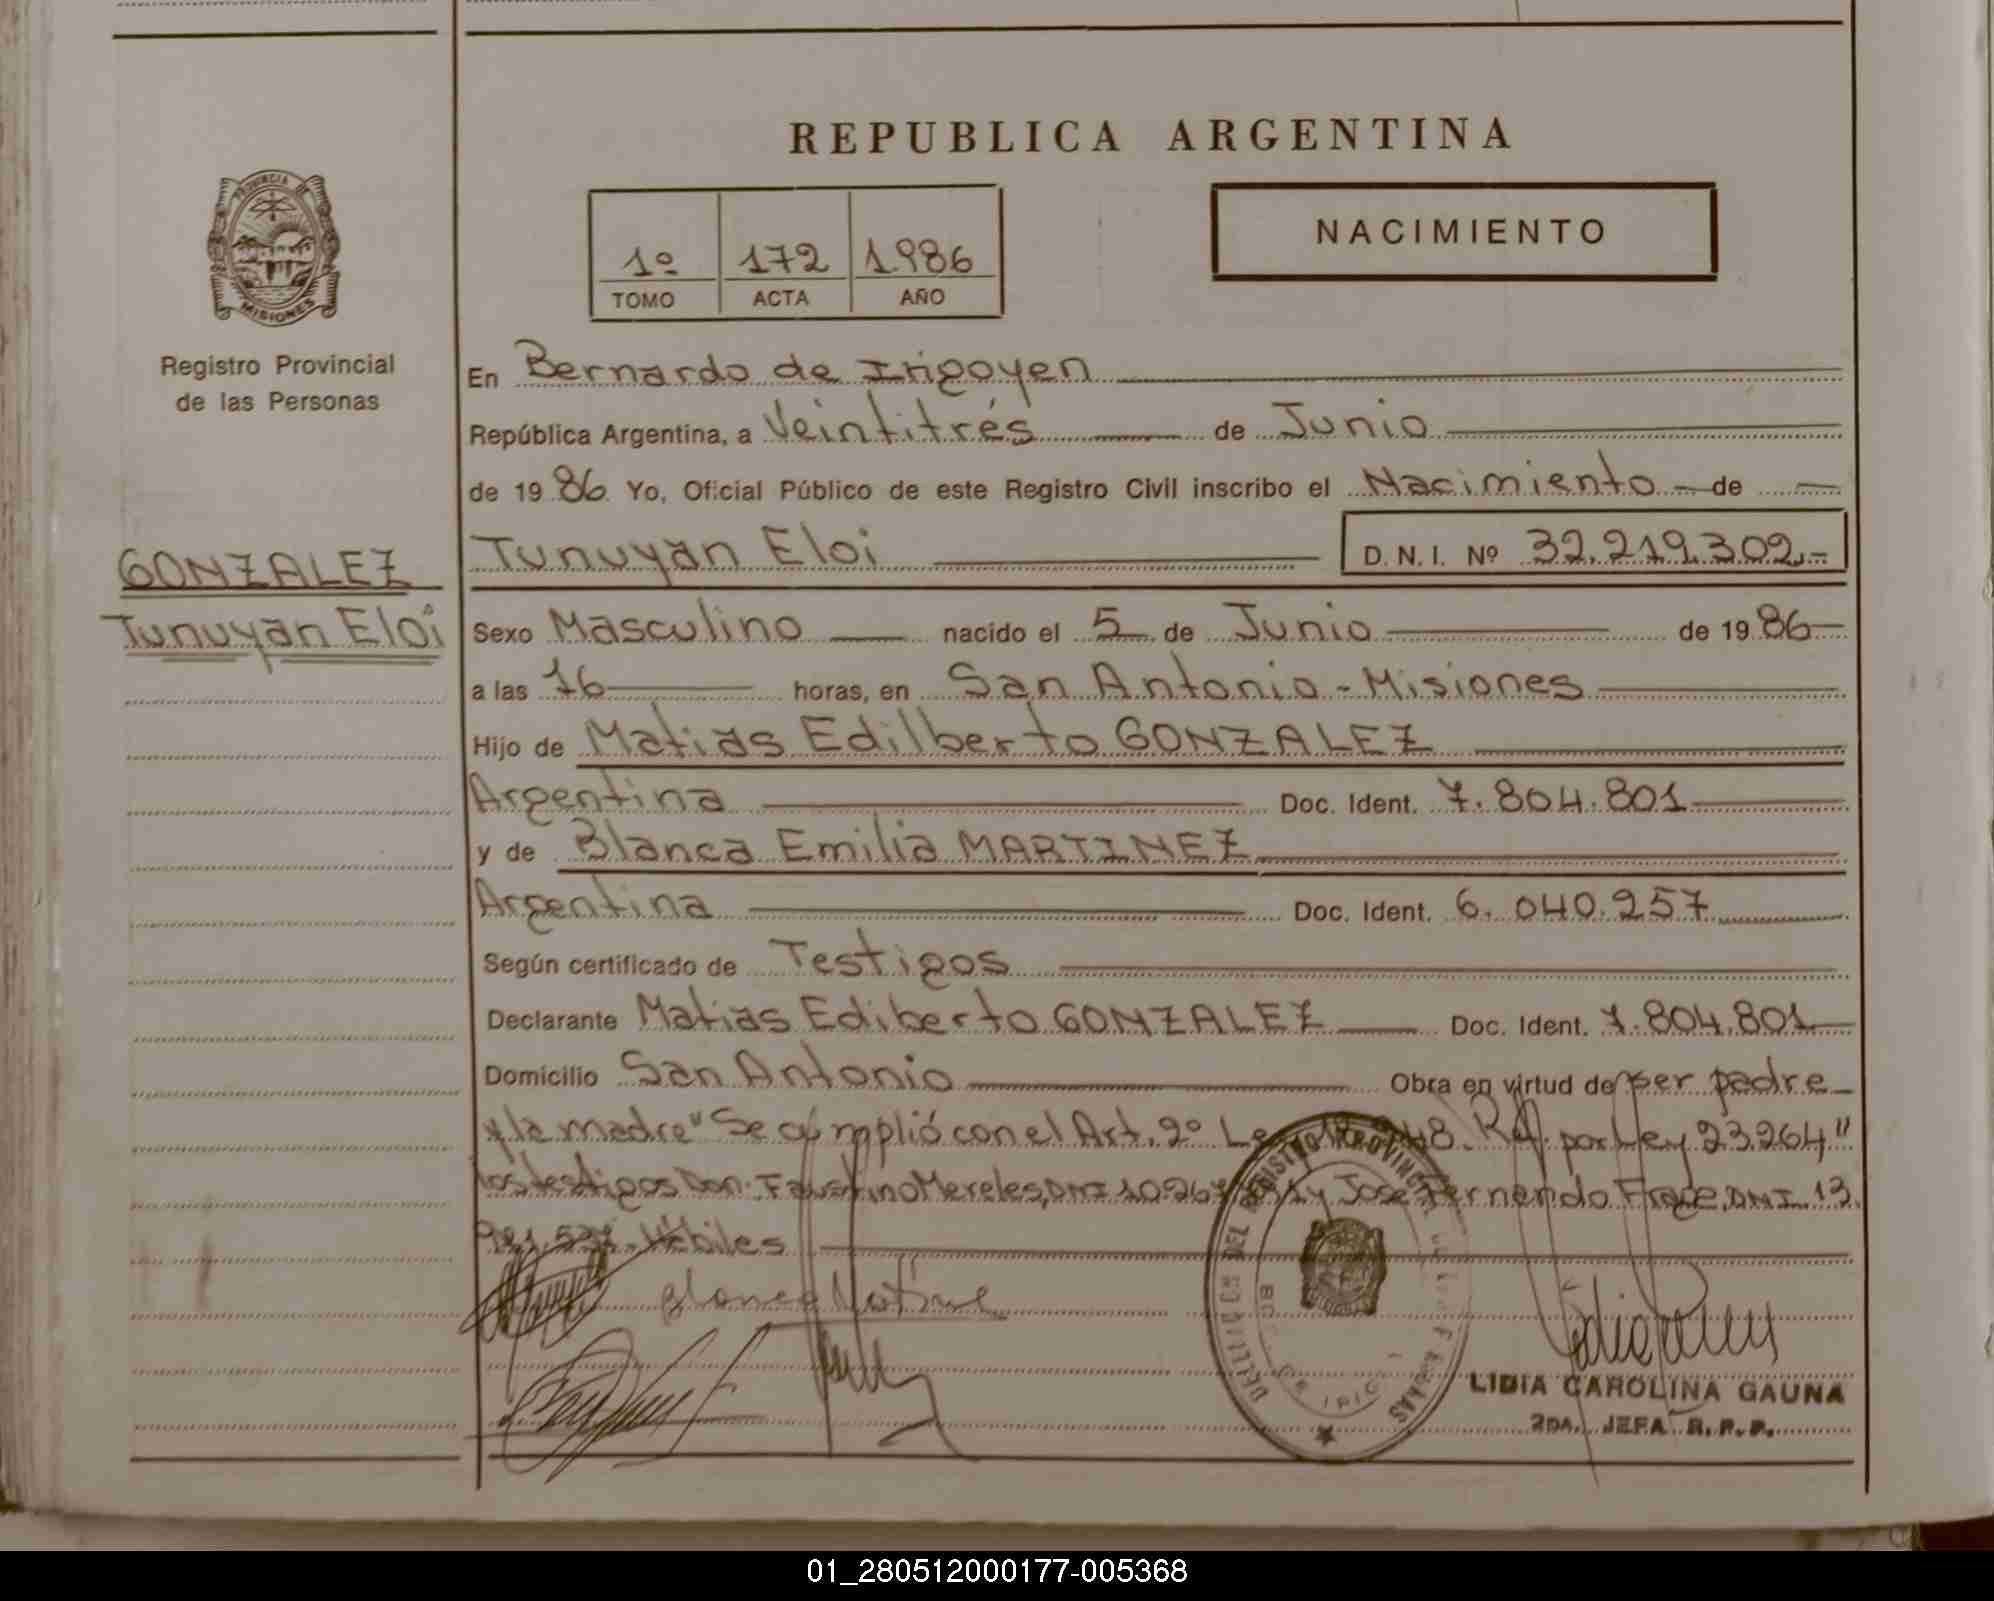 REPUBLICA ARGENTINA
NACIMIENTO
1º 172 1.986
TOMO ACTA AÑO
PROVINCIA DE
MISIONES
Registro Provincial
de las Personas
GONZALEZ
Tunuyan Eloi
En Bernardo de Irigoyen
República Argentina, a Veintitrés de Junio
de 19 86 Yo, Oficial Público de este Registro Civil inscribo el Nacimiento de
Tunuyan Eloi D. N. I. Nº 32.219.302.-
Sexo Masculino nacido el 5 de Junio de 19 86
a las 16 horas, en San Antonio - Misiones
Hijo de Matias Edilberto GONZALEZ
Argentina Doc. Ident. 7.804.801
y de Blanca Emilia MARTINEZ
Argentina Doc. Ident. 6.040.257
Según certificado de Testigos
Declarante Matias Ediberto GONZALEZ Doc. Ident. 7.804.801
Domicilio San Antonio Obra en virtud de ser padre
y la madre "Se cumplió con el Art. 2º Ref. por Ley 23.264"
los testigos Don. Faustino Mereles, DNI y Jose Fernando DNI 13.
Hábiles
LIDIA CAROLINA GAUNA
2DA. JEFA R. P. P.
01_280512000177-005368